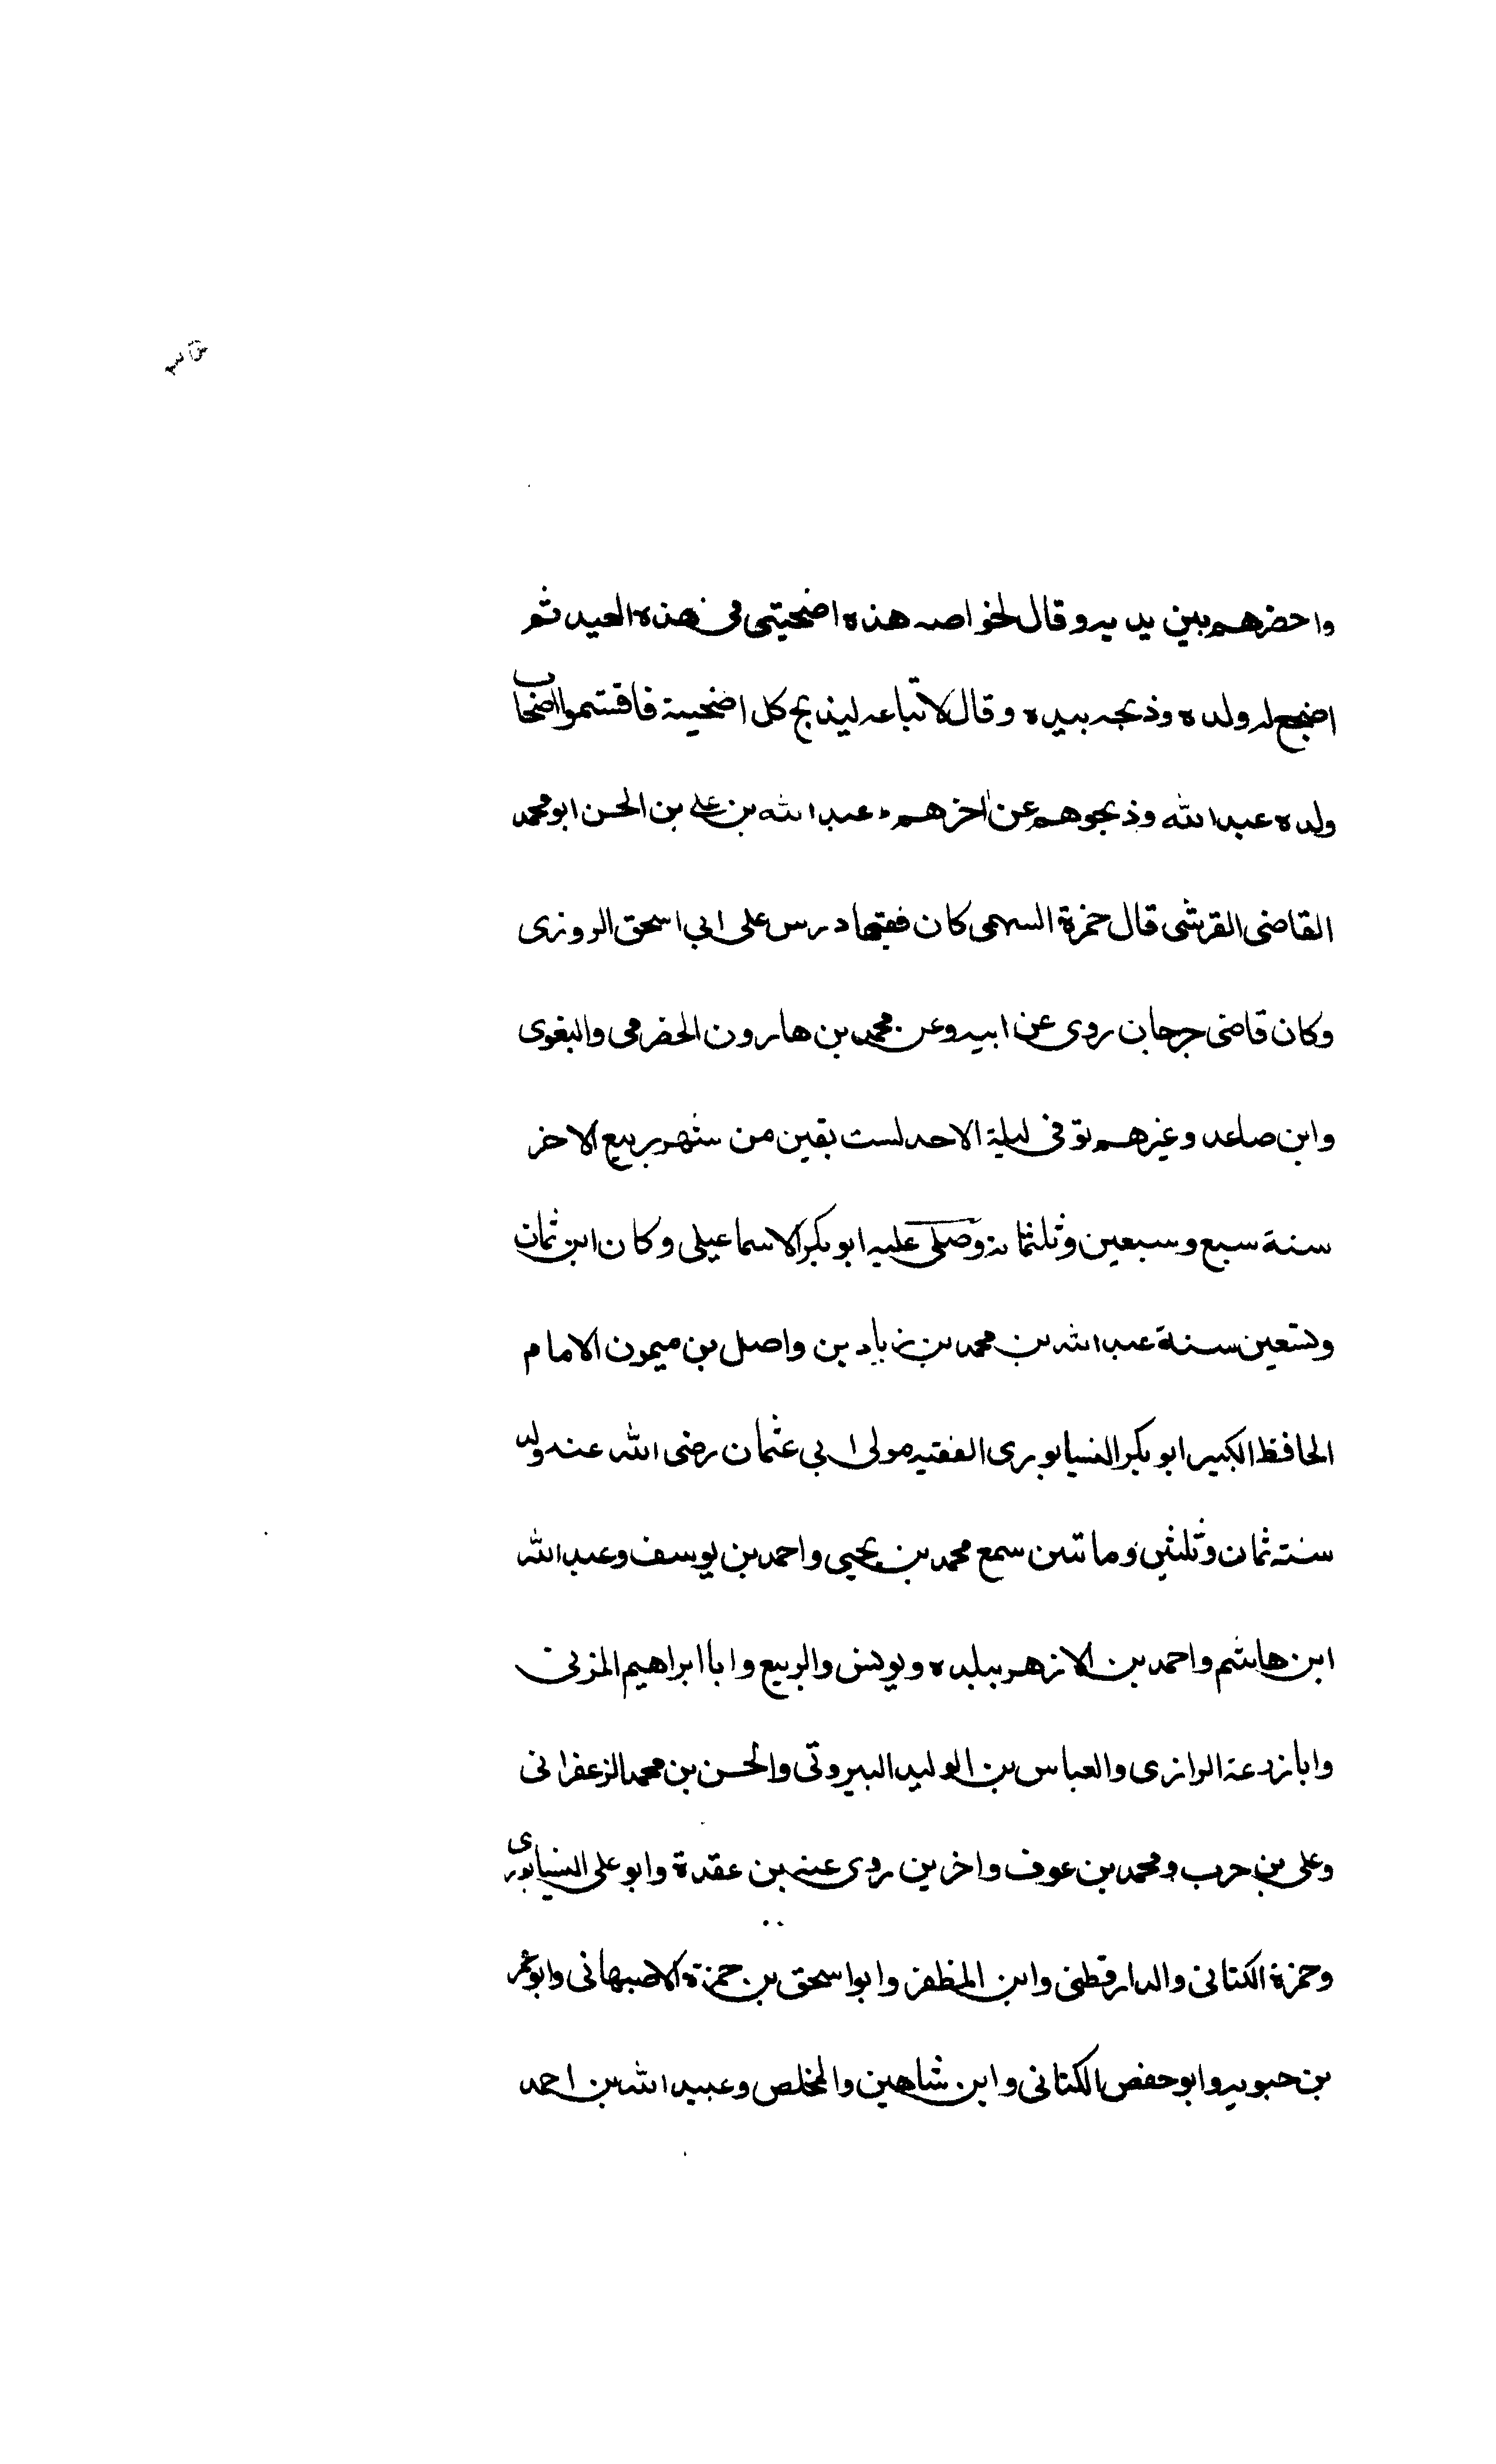 واحضرهم بين يديه وقال لخواصه هذه اضحيتى فى هذه العيد ثم
اضجع له ولده وذبحه بيده وقال لاتباعه ليذبح كل اضحيته فاقتسموا اصحاب
ولده عبد الله وذبحوهم عن اخرهم، عبد الله بن على بن الحسن ابو محمد
القاضى القرشى قال حمزة السهمى كان فقيها درس على ابى اسحق المروزى
وكان قاضى جرجان روى عن ابيه وعن محمد بن هارون الحضرمى والبغوى
وابن صاعد وغيرهم توفى ليلة الاحد لست بقين من شهر ربيع الاخر
سنة سبع وسبعين وثلثمائة وصلى عليه ابو بكر الاسماعيلى وكان ابن ثمان
وتسعين سنة عبد الله بن محمد بن زياد بن واصل بن ميمون الامام
الحافظ الكبير ابو بكر النسيابورى الفقيه مولى ابى عثمان رضى الله عنه ولد
سنته ثمان وثلثين وماتين سمع محمد بن يحيى واحمد بن يوسف وعبد الله
ابن هاشم واحمد بن الازهر ببلده ويونس والربيع وابا ابراهيم المزنى
وابا زرعة الرازى والعباس بن الوليد البيروتى والحسن بن محمد الزعفرانى
وعلى بن حرب ومحمد بن عوف واخرين روى عنه بن عقدة وابو على النسيابورى
وحمزة الكتانى والدارقطنى وابن المظفر وابو اسحق بن حمزة الاصبهانى وابو عمر
بن حبويه وابو حفص الكتانى وابن شاهين والمخلص وعبيد الله بن احمد